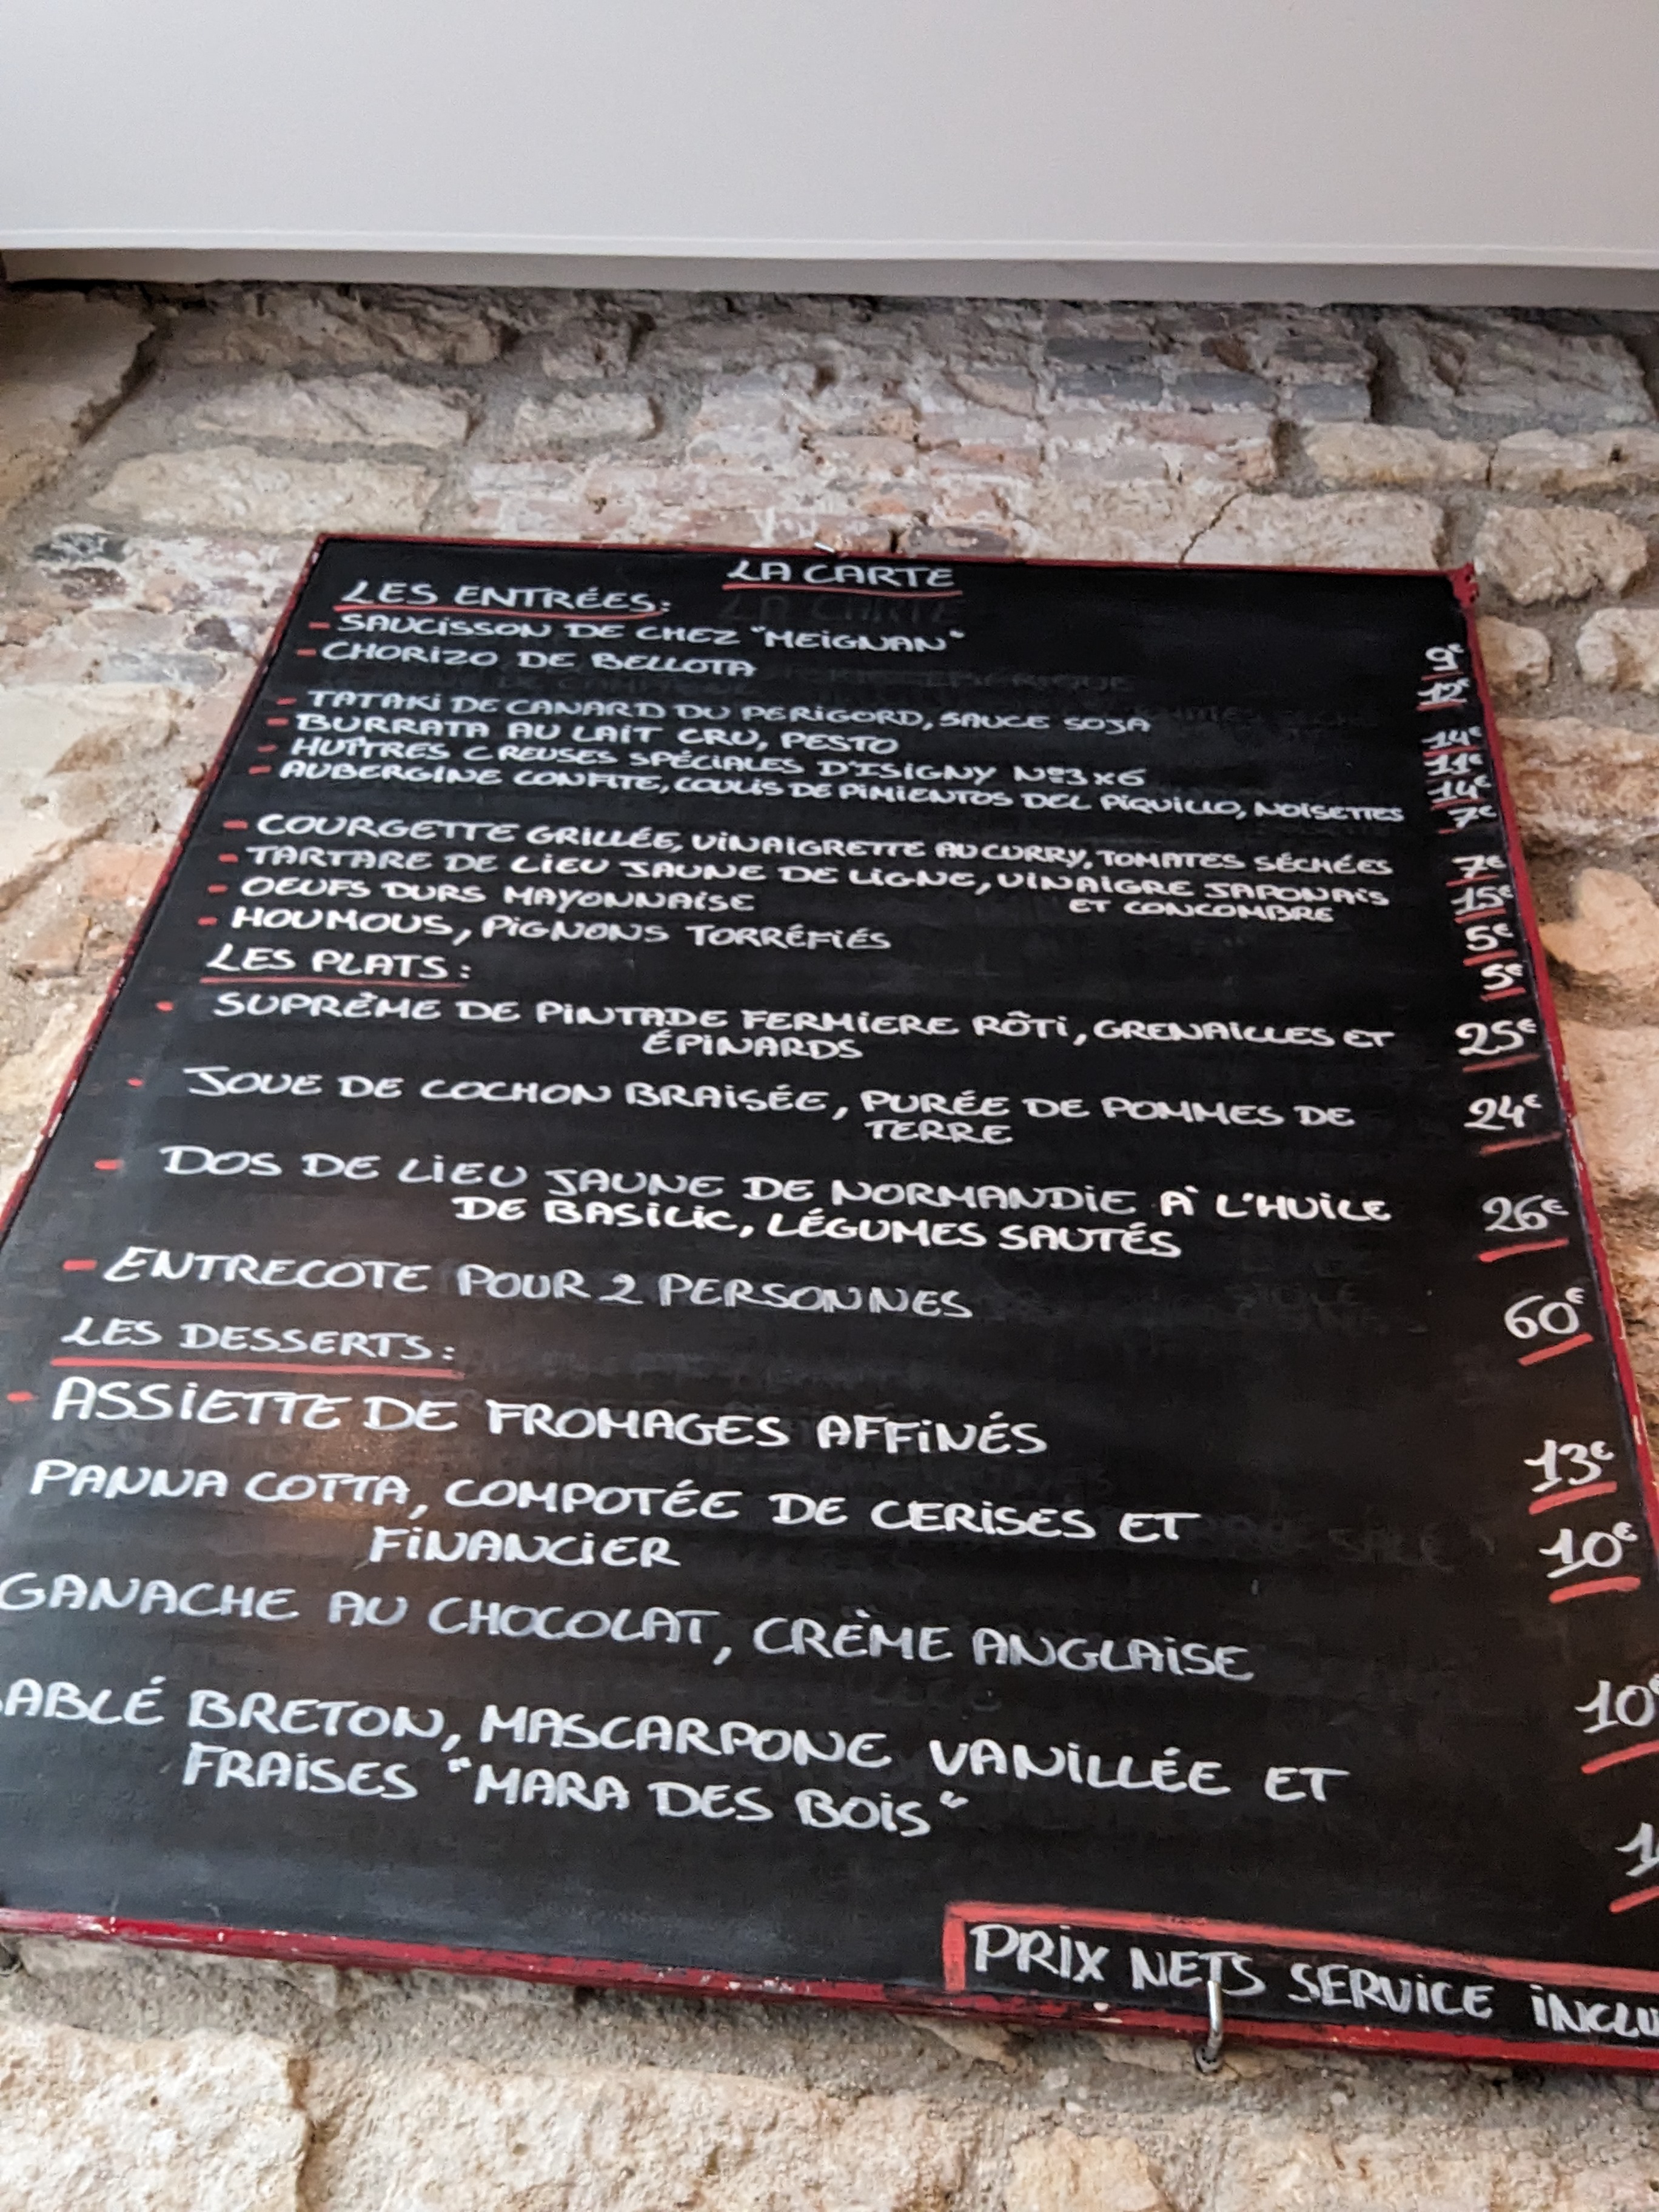 LA CARTE
LES ENTRÉES:
- SAUCISSON DE CHEZ "MEIGNAN" 9€
- CHORIZO DE BELLOTA 12€
- TATAKI DE CANARD DU PERIGORD, SAUCE SOJA 14€
- BURRATA AU LAIT CRU, PESTO 11€
- HUÎTRES CREUSES SPÉCIALES D'ISIGNY N°3 x6 14€
- AUBERGINE CONFITE, COULIS DE PIMIENTOS DEL PIQUILLO, NOISETTES 7€
- COURGETTE GRILLÉE, VINAIGRETTE AU CURRY, TOMATES SÉCHÉES 7€
- TARTARE DE LIEU JAUNE DE LIGNE, VINAIGRE JAPONAIS 15€
ET CONCOMBRE
- OEUFS DURS MAYONNAISE 5€
- HOUMOUS, PIGNONS TORRÉFIÉS 5€
LES PLATS:
- SUPRÊME DE PINTADE FERMIERE RÔTI, GRENAILLES ET 25€
ÉPINARDS
- JOUE DE COCHON BRAISÉE, PURÉE DE POMMES DE 24€
TERRE
- DOS DE LIEU JAUNE DE NORMANDIE À L'HUILE 26€
DE BASILIC, LÉGUMES SAUTÉS
- ENTRECOTE POUR 2 PERSONNES 60€
LES DESSERTS:
- ASSIETTE DE FROMAGES AFFINÉS 13€
PANNA COTTA, COMPOTÉE DE CERISES ET 10€
FINANCIER
GANACHE AU CHOCOLAT, CRÈME ANGLAISE 10€
ABLÉ BRETON, MASCARPONE VANILLÉE ET
FRAISES "MARA DES BOIS"
PRIX NETS SERVICE INCLU